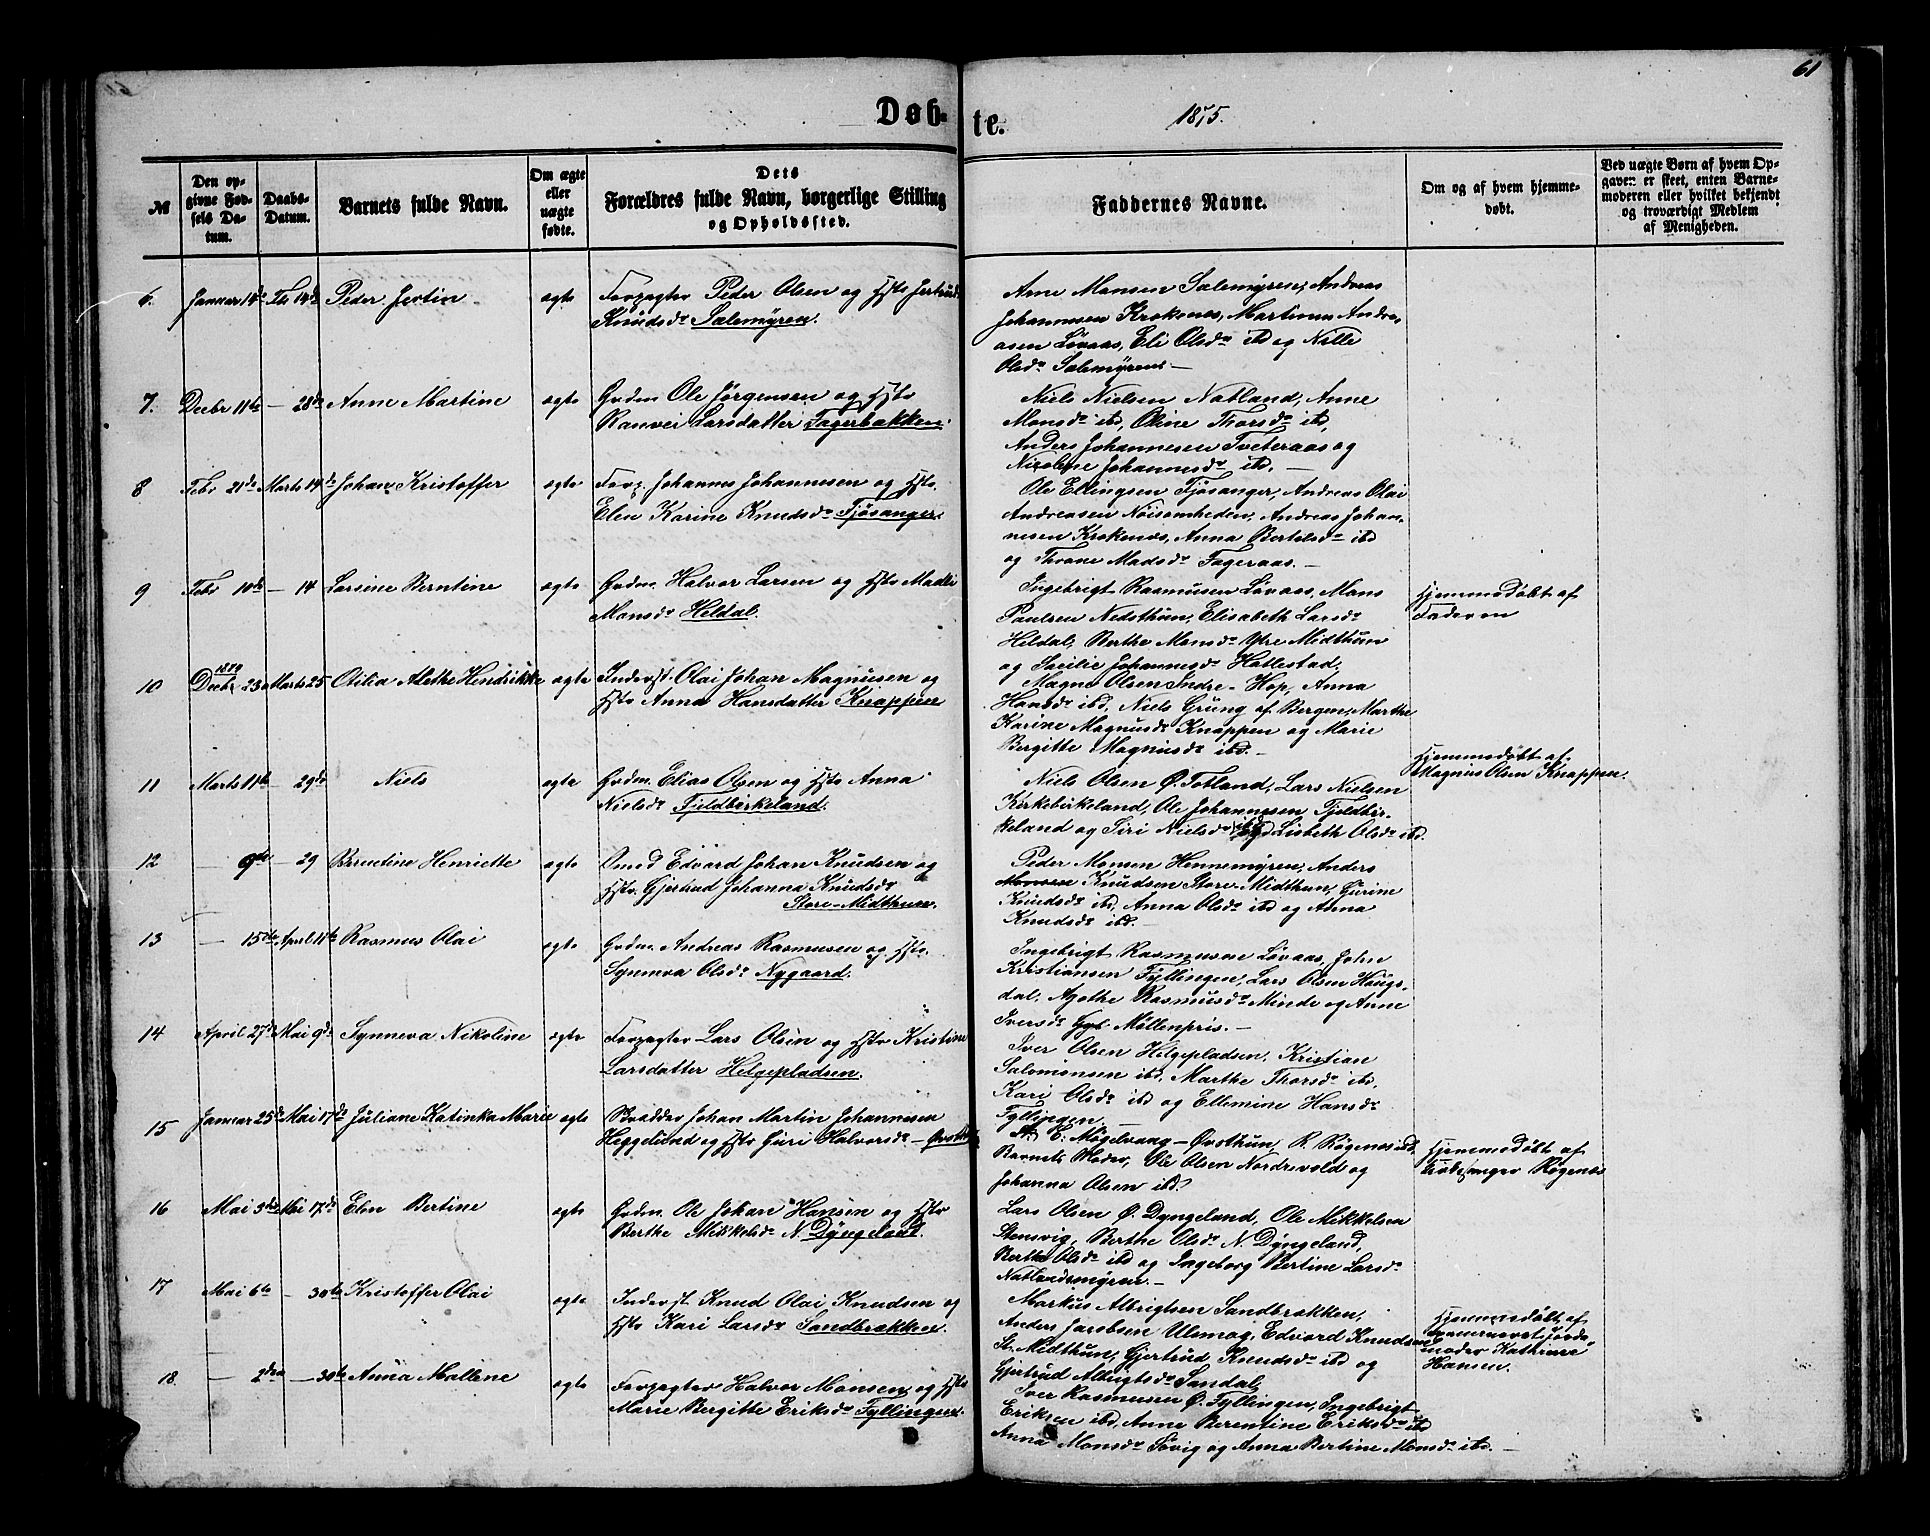 61
Døb-
te.
1875.
№
Den op-
givne Fød-
sels Da-
tum.
Daabs-
Datum.
Barnets fulde Navn.
Om ægte
eller
uægte
fødte.
Dets
Forældres fulde Navn, borgerlige Stilling
og Opholdssted.
Faddernes Navne.
Om og af hvem hjemme-
døbt.
Ved uægte Børn af hvem Op-
gaven er skeet, enten Barne-
moderen eller hvilket bekjendt
og troværdigt Medlem
af Menigheden.
6. Januar 14de Fb 14de Peder Jertin ægte Forpagter Peder Olsen og Hstr Jertrud
Knudsdr Salemyren.
Arne Monsen Salemyren, Andreas
Johannesen Krokenes, Martinus Andre-
asen Løvaas, Eli Olsdr ibd og Nille
Olsdr Salemyren —
7. Decbr 11te — 28de Anne Martine ægte Grdm. Ole Jørgensen og Hstr
Ranvei Larsdatter Fagerbakken.
Niels Nielsen Natland, Anne
Monsdr ibd, Oline Thorsdr ibd,
Anders Johannesen Tveteraas og
Nicoline Johannesdr ibd. —
8 Febr 21de Marts 14de Johan Kristoffer ægte Forp. Johannes Johannesen og Hstr.
Elen Karine Knudsdr Fjøsanger.
Ole Ellingsen Fjøsanger, Andreas Olai
Andreasen Nøisomheden, Andreas Johan-
nesen Krokenes, Anna Bertelsdr ibd
og Throne Madsdr Fageraas. —
9 Febr 10de — 14 Larsine Berntine ægte Grdm. Halvor Larsen og Hstr Madli
Monsdr Heldal.
Ingebrigt Rasmusen Løvaas, Mons
Paulsen Nedsthun, Elisabeth Larsdr
Heldal, Berthe Monsdr Ytre Midthun
og Sæcilie Johannesdr Hatlestad.
Hjemmedøbt af
Faderen
10 1874
Decbr 23 Marts 25 Otilia Alethe Hendrikke ægte Inderst. Olai Johan Magnusen og
Hstr Anna Hansdatter Knappen
Magne Olsen Indre-Hop, Anna
Hansdr ibd, Niels Grung af Bergen, Marthe
Karine Magnusdr Knappen og Marie
Bergitte Magnusdr ibd. —
Hjemmedøbt af
Magnus Olsen Knappen.
11 Marts 11te — 29de Niels ægte Grdm. Elias Olsen og Hstr Anna
Nielsdr Fjeldbirkeland.
Niels Olsen Ø. Totland, Lars Nielsen
Kirkebirkeland, Ole Johannesen Fjeldbir-
keland og Siri Nielsdr ibd Lisbeth Olsdr ibd.
12 — 9de — 29 Berentine Henriette ægte Smed Edvard Johan Knudsen og
Hstr. Gjertrud Johanna Knudsdr
Store-Midthun.
Peder Monsen Hennemyren, Anders
Monsen Knudsen Store-Midthun, Gurine
Knudsdr ibd, Anna Olsdr ibd og Anna
Knudsdr ibd. —
13 — 15de April 11te Rasmus Olai ægte Grdm. Andreas Rasmusen og Hstr.
Synneva Olsdr Nygaard.
Ingebrigt Rasmusen Løvaas, John
Kristiansen Fyllingen, Lars Olsen Haugs-
dal, Agathe Rasmusdr Minde og Anne
Iversdr Gyl Møllenpris. —
14 April 27de Mai 9de Synneva Nikoline ægte Forpagter Lars Olsen og Hstr Kristine
Larsdatter Helgepladsen.
Iver Olsen Helgepladsen, Kristian
Salomonsen ibd, Marthe Thorsdr ibd,
Kari Olsdr ibd og Ellemine Hansdr
Fyllingen.
15 Januar 25de Mai 17de Juliane Katinka Marie ægte Johan Martin Johannesen
Heggelund og Hstr Guri Halvorsdr — Øvsthun
E. Møgelvang — Øvsthun, R. Røgenes ibd,
Barnets Moder, Ole Olsen Nordrevold og
Johanna Olsen ibd.
Hjemmedøbt af
Røgenes
16 Mai 5de Mai 17de Elen Bertine ægte Grdm. Ole Johan Hansen og Hstr
Berthe Mikkelsdr N. Dyngeland.
Lars Olsen Ø. Dyngeland, Ole Mikkelsen
Stensvig, Berthe Olsdr N. Dyngeland,
Berthe Olsdr ibd og Ingeborg Bertine Larsdr
Natlandsmyren. —
17 Mai 6te — 30te Kristoffer Olai ægte Inderst. Knud Olai Knudsen og
Hstr Kari Larsdr Sandbrækken.
Markus Albrigtsen Sandbrækken,
Anders Jacobsen Ulsmog, Edvard Knudsen
St. Midthun, Gjertrud Knudsdr ibd og
Gjertrud Albrigtsdr Sandal.
Hjemmedøbt af
examineret Jorde-
moder Kathrine
Hansen.
18. — 2den — 30te Anna Mallene ægte Forpagter Halvor Monsen og Hstr
Marie Bergitte Eriksdr Fyllingen.
Iver Rasmusen Ø. Fyllingen, Ingebrigt
Eriksen ibd, Anne Berentine Eriksdr ibd
Anna Monsdr Søvig og Anna Bertine Monsdr ibd. —